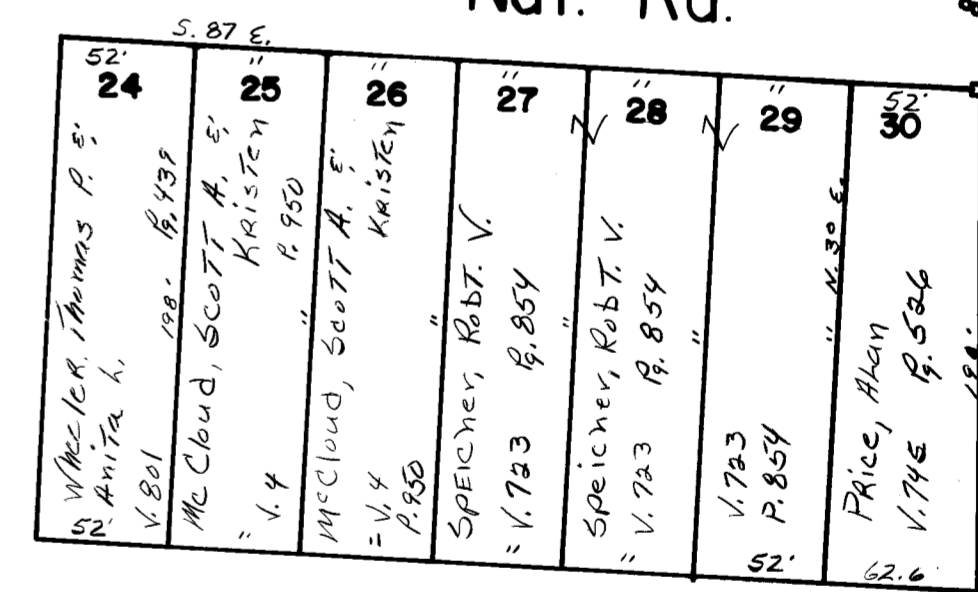 Nat. Rd.
S. 87 E.
52'
24
Wheeler, Thomas P. &
Anita L.
V. 801 Pg. 439
198'
52'
"
25
McCloud, Scott A. &
Kristen
V. 4 P. 950
"
"
"
26
McCloud, Scott A. &
Kristen
= V. 4
P. 950
"
"
27
SpEicher, Robt. V.
V. 723 Pg. 854
"
"
"
28
Speicher, Robt. V.
V. 723 Pg. 854
"
"
"
29
V. 723
P. 854
" N. 3° E.
52'
52'
30
Price, Alan
V. 745 Pg. 526
198'
62.6